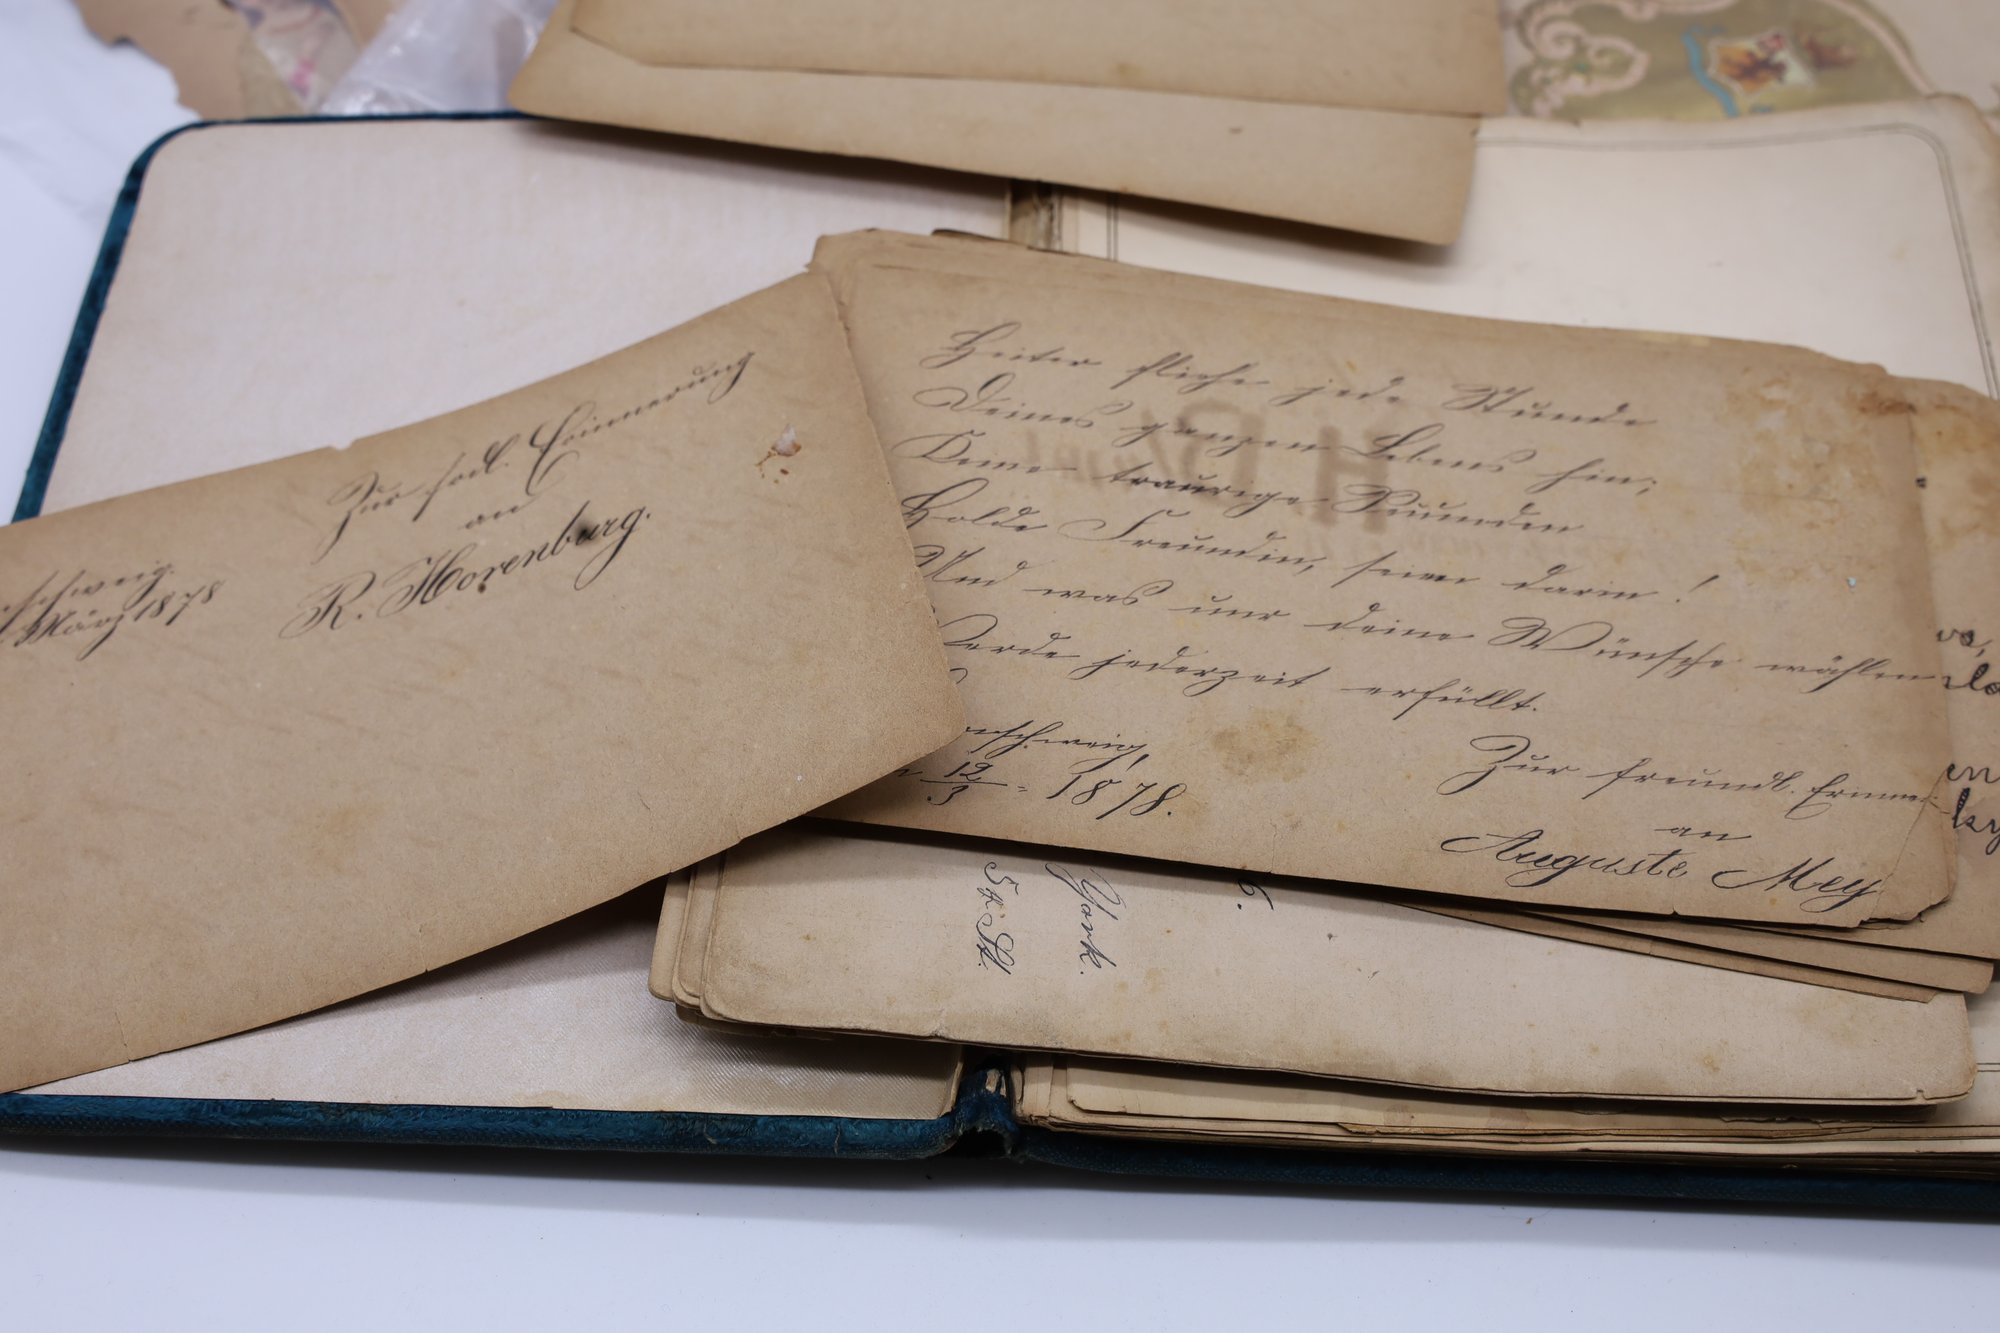 Zur frdl. Erinnerung
an
R. Horenburg.
schweig.
März 1878
Heiter fliehe jede Stunde
Deines ganzen Lebens hin;
Keine traurige Sekunden
Holde Freundin, seien darin!
Und was nur deine Wünsche wählen
Werde jederzeit erfüllt.
schweig,
12/3 = 1878.
Zur freundl. Erinne
an
Auguste Mey
York.
St.
6.